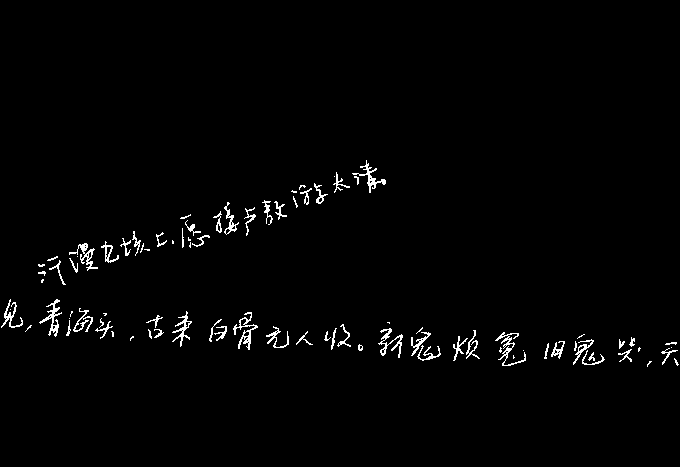 汗漫九垓上,愿接卢敖游太清。
见,青海头,古来白骨无人收。新鬼烦冤旧鬼哭,天